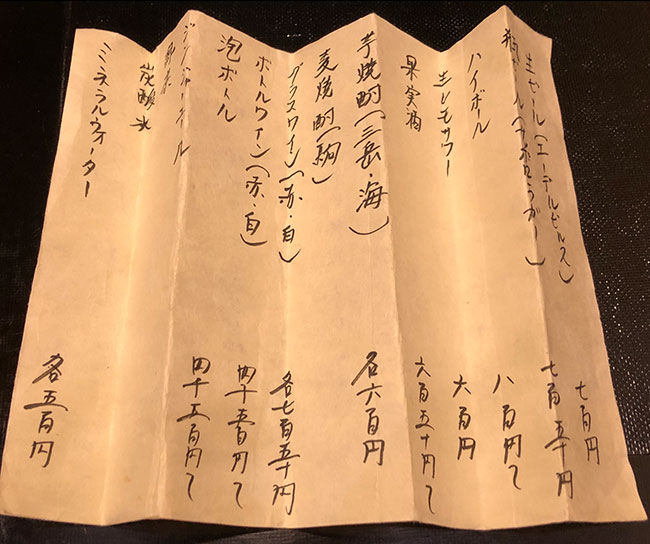 生ビール（エーデルピルス） 七百円
瓶ビール（サッポロラガー） 七百五十円
ハイボール 八百円〜
生レモサワー 六百円
果実酒 六百五十円〜
芋焼酎（三岳・海）
麦焼酎（駒） 各六百円
グラスワイン（赤・白） 各七百五十円
ボトルワイン（赤・白） 四千五百円〜
泡ボトル 四千五百円〜
ジンジャーエール
炭酸水
ミネラルウォーター 各五百円